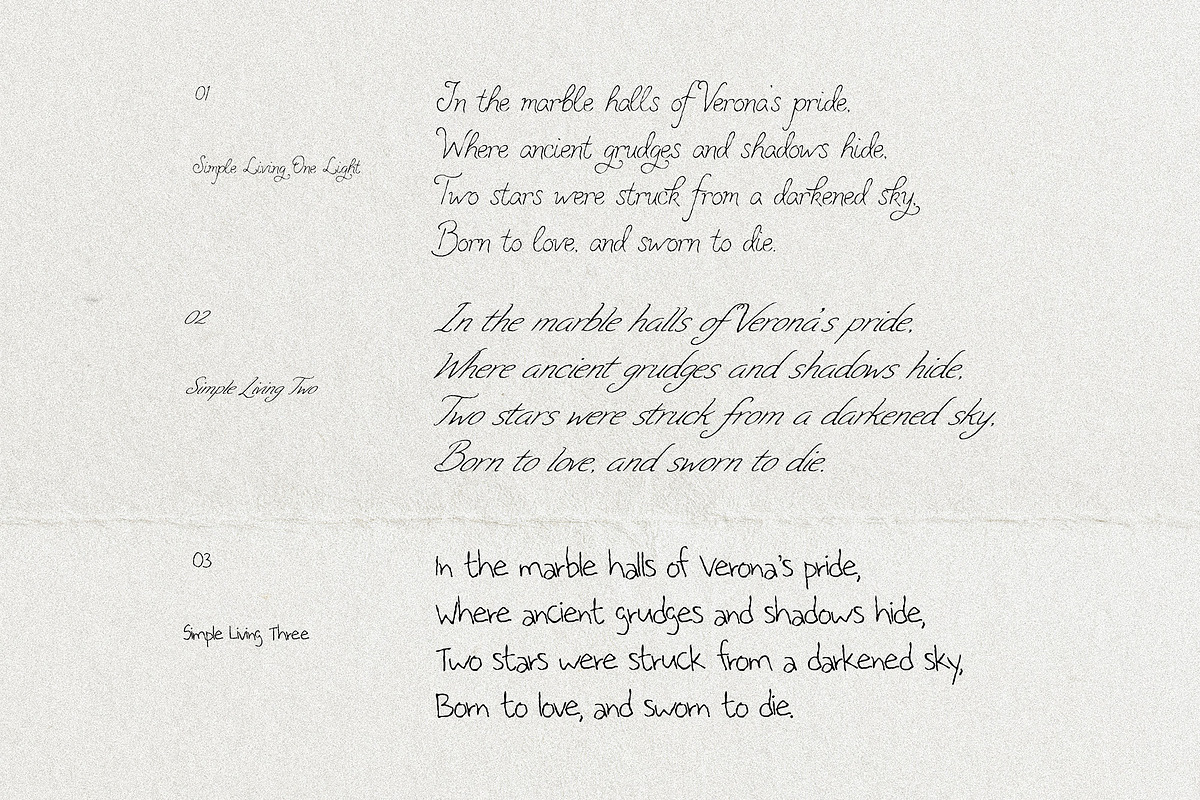 01
Simple Living One Light
In the marble halls of Verona's pride,
Where ancient grudges and shadows hide,
Two stars were struck from a darkened sky,
Born to love, and sworn to die.
02
Simple Living Two
In the marble halls of Verona's pride,
Where ancient grudges and shadows hide,
Two stars were struck from a darkened sky,
Born to love, and sworn to die.
03
Simple Living Three
In the marble halls of Verona's pride,
Where ancient grudges and shadows hide,
Two stars were struck from a darkened sky,
Born to love, and sworn to die.